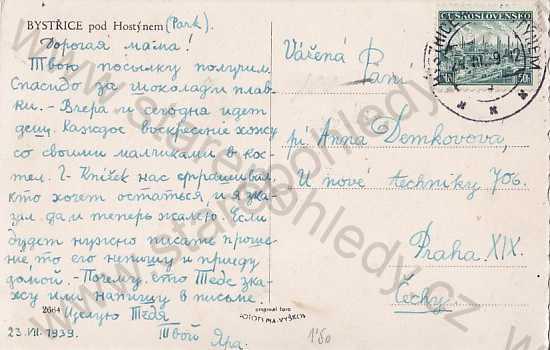 BYSTŘICE pod Hostýnem (Park).
Дорогая мама!
Твою посылку получил.
Спасибо за шоколад и плав
ки. - Вчера и сегодна идет
дещ. Каждое воскресние хожу
со своими мальчиками в кос
тел. Г. Knížek нас спрашивал,
кто хочет остаться, и я ска
зал, да и теперь жалею. Если
будет нужно писате проше
ние, то его непишу и приеду
домой. - Почему, ето Тебе ска
жу или напишу в письме.
Целую Тебя
Твой Яра.
23.VII.1939.
2664
original foto
FOTOTYPIA-VYŠKOV
1'50
Vážená
Paní
pí Anna Demkovova,
U nové techniky 706.
Praha XIX.
Čechy.
ČESKOSLOVENSKO
www.stare-pohledy.cz